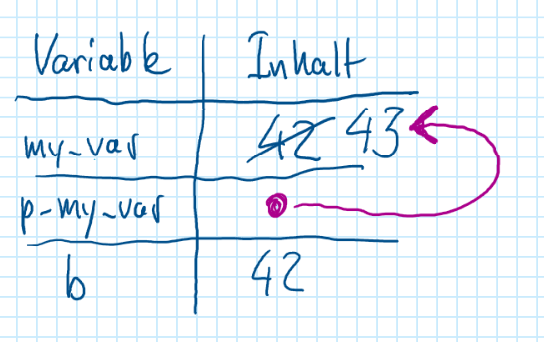 Variable Inhalt
my_var 42 43
p-my-var
b 42